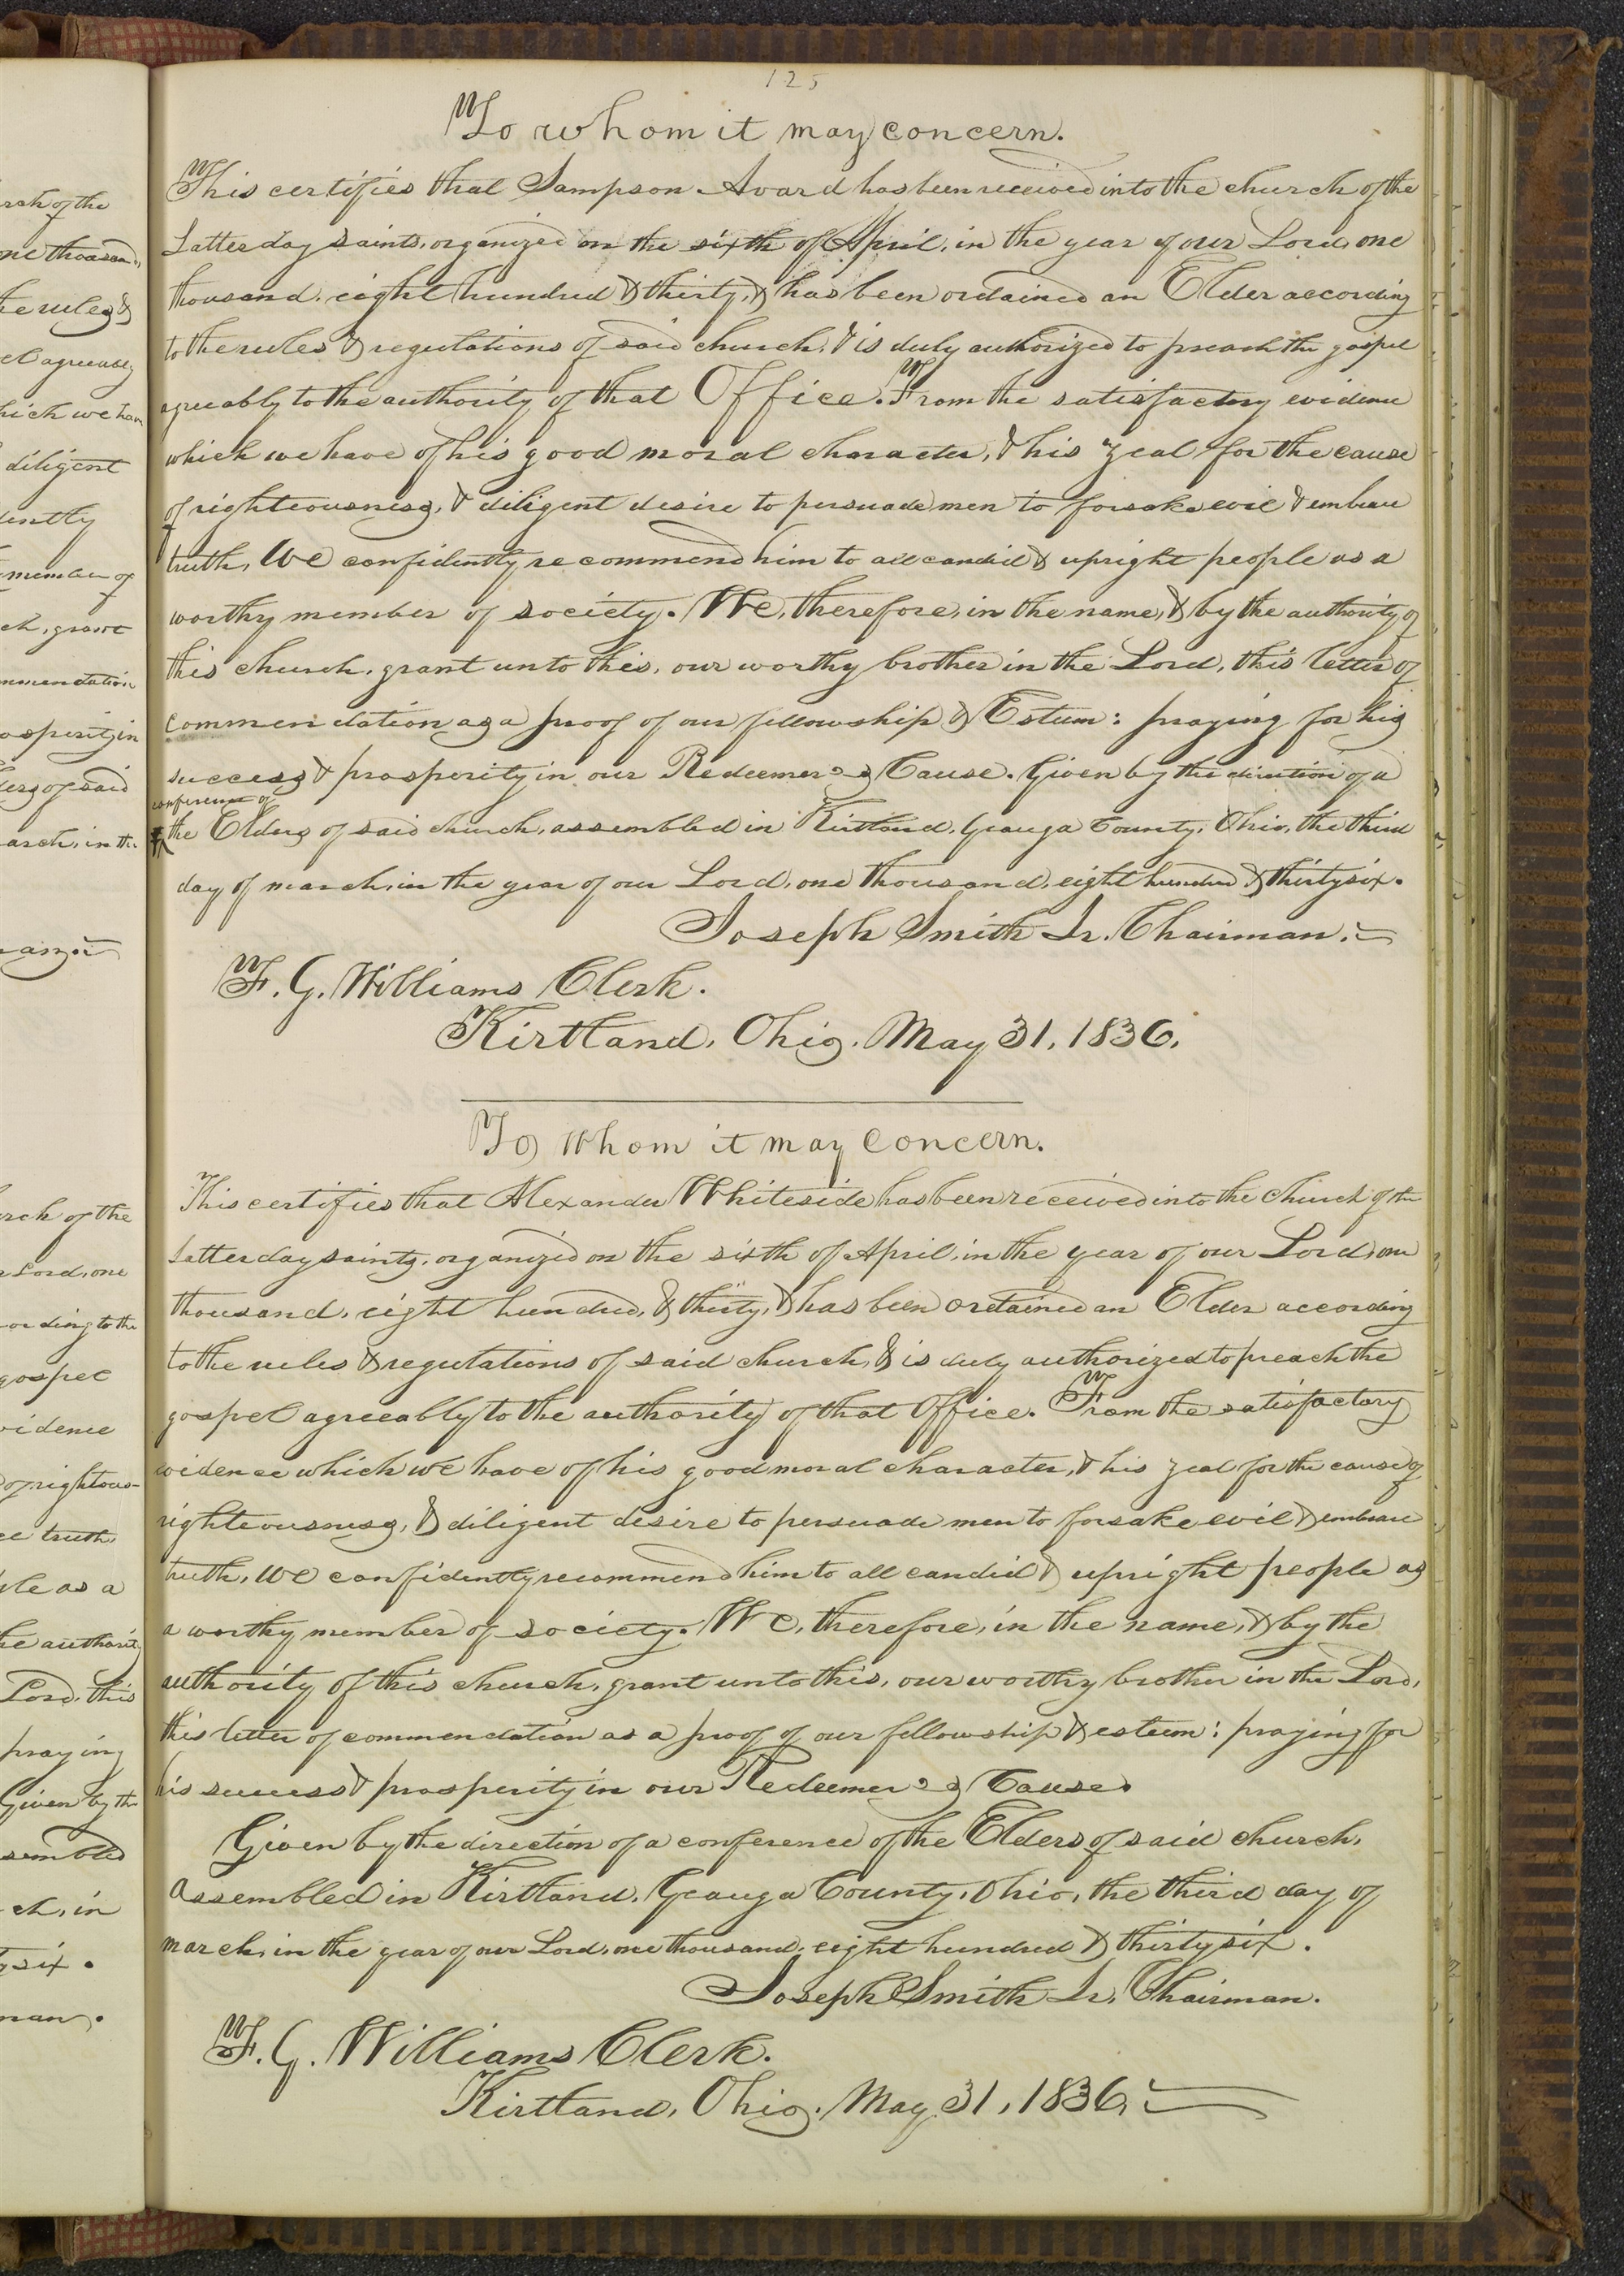 125
To whom it may concern.
This certifies that Sampson Avard has been received into the church of the
Latter day saints, organized on the sixth of April, in the year of our Lord, one
thousand, eight hundred & thirty, & has been ordained an Elder according
to the rules & regulations of said church, & is duly authorized to preach the gospel
agreeably to the authority of that Office. From the satisfactory evidence
which we have of his good moral character, & his zeal for the cause
of righteousness, & diligent desire to persuade men to forsake evil & embrace
truth, We confidently recommend him to all candid & upright people as a
worthy member of society. We, therefore, in the name, & by the authority of
this church, grant unto this, our worthy brother in the Lord, this letter of
commendation as a proof of our fellowship & Esteem: praying for his
success & prosperity in our Redeemer's Cause. Given by the direction of a
conference of
the Elders of said church, assembled in Kirtland, Geauga County, Ohio, the third
day of march, in the year of our Lord, one thousand, eight hundred & thirty six.
Joseph Smith Jr. Chairman.
F. G. Williams Clerk.
Kirtland, Ohio. May 31, 1836.
To Whom it may Concern.
This certifies that Alexander Whiteside has been received into the church of the
Latter day saints, organized on the sixth of April, in the year of our Lord, one
thousand, eight hundred, & thirty, & has been ordained an Elder according
to the rules & regulations of said church, & is duly authorized to preach the
gospel agreeably to the authority of that Office. From the satisfactory
evidence which we have of his good moral character, & his zeal for the cause of
righteousness, & diligent desire to persuade men to forsake evil & embrace
truth, We confidently recommend him to all candid & upright people as
a worthy member of society. We, therefore, in the name, & by the
authority of this church, grant unto this, our worthy brother in the Lord,
this letter of commendation as a proof of our fellowship & esteem: praying for
his success & prosperity in our Redeemer's Cause.
Given by the direction of a conference of the Elders of said church,
assembled in Kirtland, Geauga County, Ohio, the third day of
march, in the year of our Lord, one thousand, eight hundred & thirty six.
Joseph Smith Jr. Chairman.
F. G. Williams Clerk.
Kirtland, Ohio. May 31, 1836.